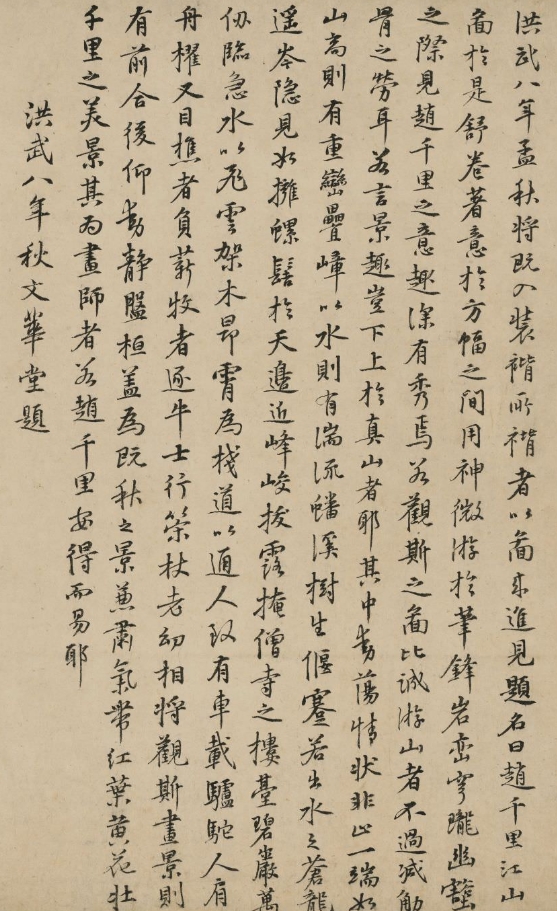 洪武八年孟秋將既入裝褙所褙者以圖來進見題名曰趙千里江山
圖於是舒卷著意於方幅之間用神微游於筆鋒岩巒穹瓏幽壑
之際見趙千里之意趣深有秀焉若觀斯之圖比誠游山者不過減觔
骨之勞耳若言景趣豈下上於真山者耶其中動蕩情狀非止一端如
山高則有重巒疊嶂以水則有湍流蟠溪樹生偃蹇若出水之蒼龍
遥岑隐見如擁螺髻於天邊近峰峻拔露掩僧寺之樓臺碧巖萬
仭臨急水以飛雲架木昂霄為棧道以通人致有車載驢駝人肩
舟櫂又目樵者負薪牧者逐牛士行策杖老幼相將觀斯畫景則
有前合後仰動静盤桓蓋為既秋之景兼肅氣帶紅葉黃花壯
千里之美景其為畫師者若趙千里安得而易耶
洪武八年秋文華堂題